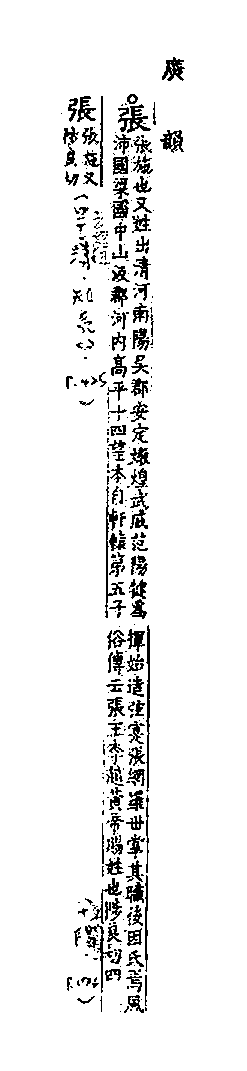 廣韻
張
張施也又姓出清河南陽吳郡安定燉煌武威范陽犍為
沛國梁國中山汲郡河內高平十四望本自軒轅第五子
揮始造弦寔張網羅世掌其職後因氏焉風
俗傳云張王李趙黃帝賜姓也陟良切四
張
張施又
陟良切
P.425)